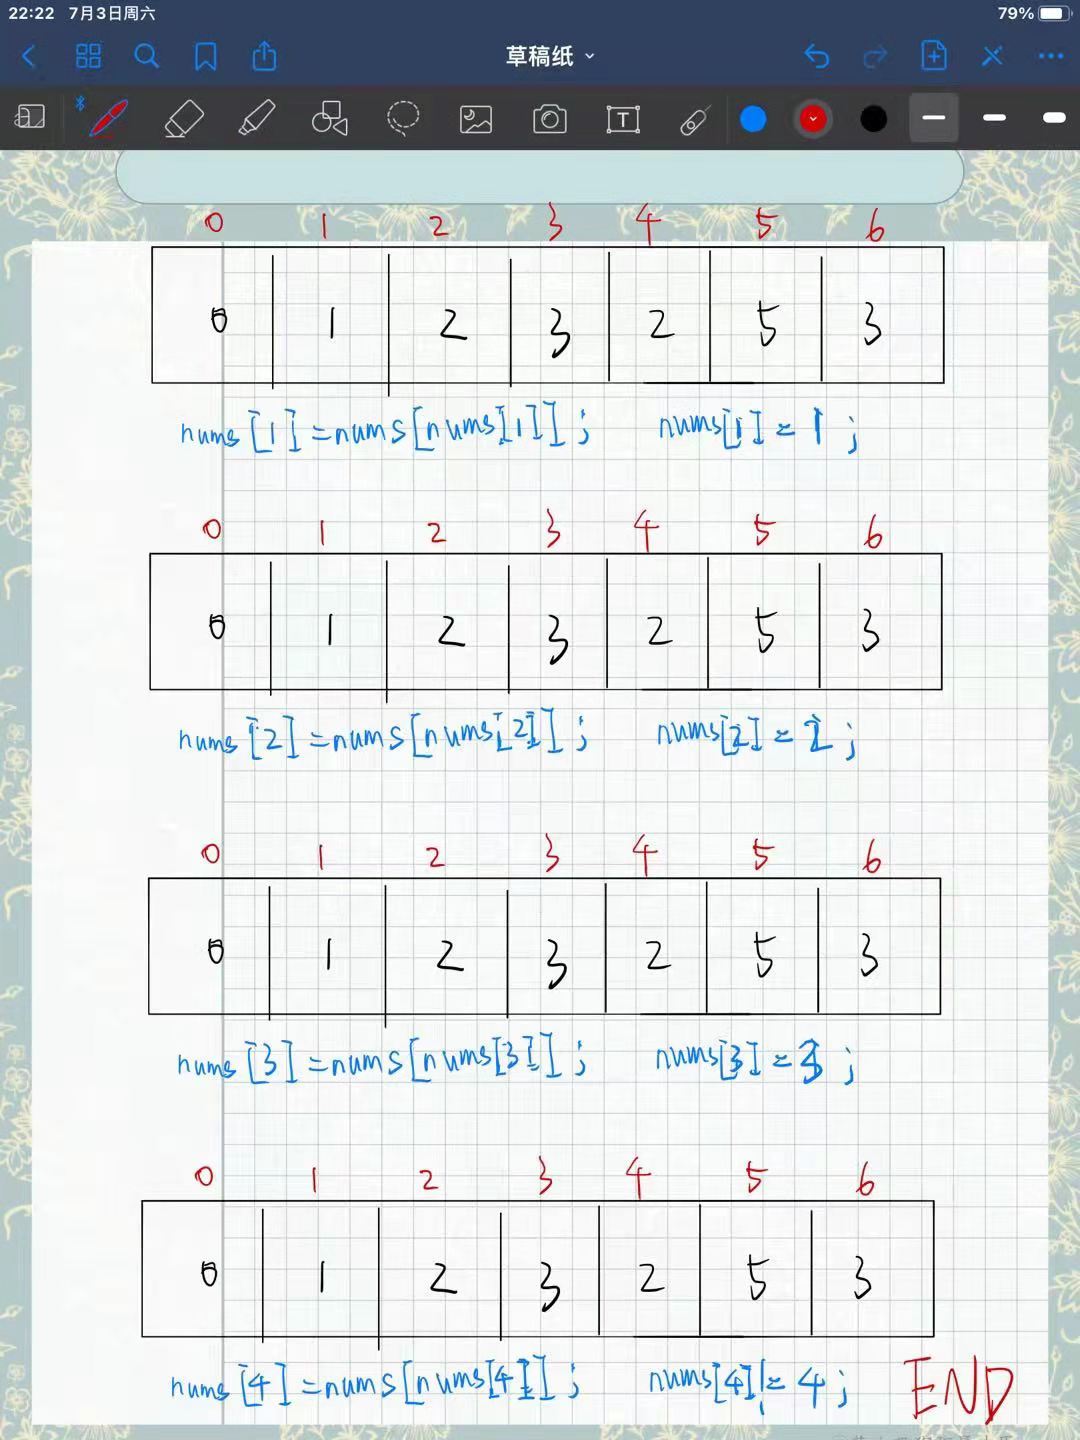 22:22 7月3日周六 79%
草稿纸
T
0 1 2 3 4 5 6
0 1 2 3 2 5 3
nums[1]=nums[nums[1]]; nums[1]=1;
0 1 2 3 4 5 6
0 1 2 3 2 5 3
nums[2]=nums[nums[2]]; nums[2]=2;
0 1 2 3 4 5 6
0 1 2 3 2 5 3
nums[3]=nums[nums[3]]; nums[3]=3;
0 1 2 3 4 5 6
0 1 2 3 2 5 3
nums[4]=nums[nums[4]]; nums[4]!=4;
END